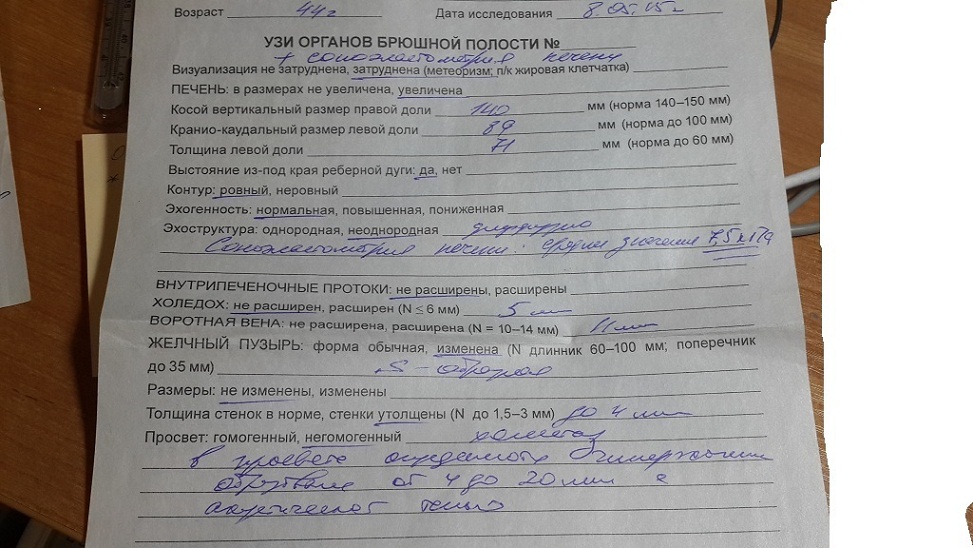 Возраст 44г Дата исследования 8.05.15г
УЗИ ОРГАНОВ БРЮШНОЙ ПОЛОСТИ №
+ соноэластометрия печени
Визуализация не затруднена, затруднена (метеоризм; п/к жировая клетчатка)
ПЕЧЕНЬ: в размерах не увеличена, увеличена
Косой вертикальный размер правой доли 140 мм (норма 140–150 мм)
Кранио-каудальный размер левой доли 89 мм (норма до 100 мм)
Толщина левой доли 71 мм (норма до 60 мм)
Выстояние из-под края реберной дуги: да, нет
Контур: ровный, неровный
Эхогенность: нормальная, повышенная, пониженная
Эхоструктура: однородная, неоднородная диффузно
Соноэластометрия печени: средние значения 7,5 кПа
ВНУТРИПЕЧЕНОЧНЫЕ ПРОТОКИ: не расширены, расширены
ХОЛЕДОХ: не расширен, расширен (N ≤ 6 мм) 5 мм
ВОРОТНАЯ ВЕНА: не расширена, расширена (N = 10–14 мм) 11 мм
ЖЕЛЧНЫЙ ПУЗЫРЬ: форма обычная, изменена (N длинник 60–100 мм; поперечник
до 35 мм) S – образная
Размеры: не изменены, изменены
Толщина стенок в норме, стенки утолщены (N до 1,5–3 мм) до 4 мм
Просвет: гомогенный, негомогенный холестаз
в просвете определяются гиперэхогенные
образования от 4 до 20 мм с
акустической тенью